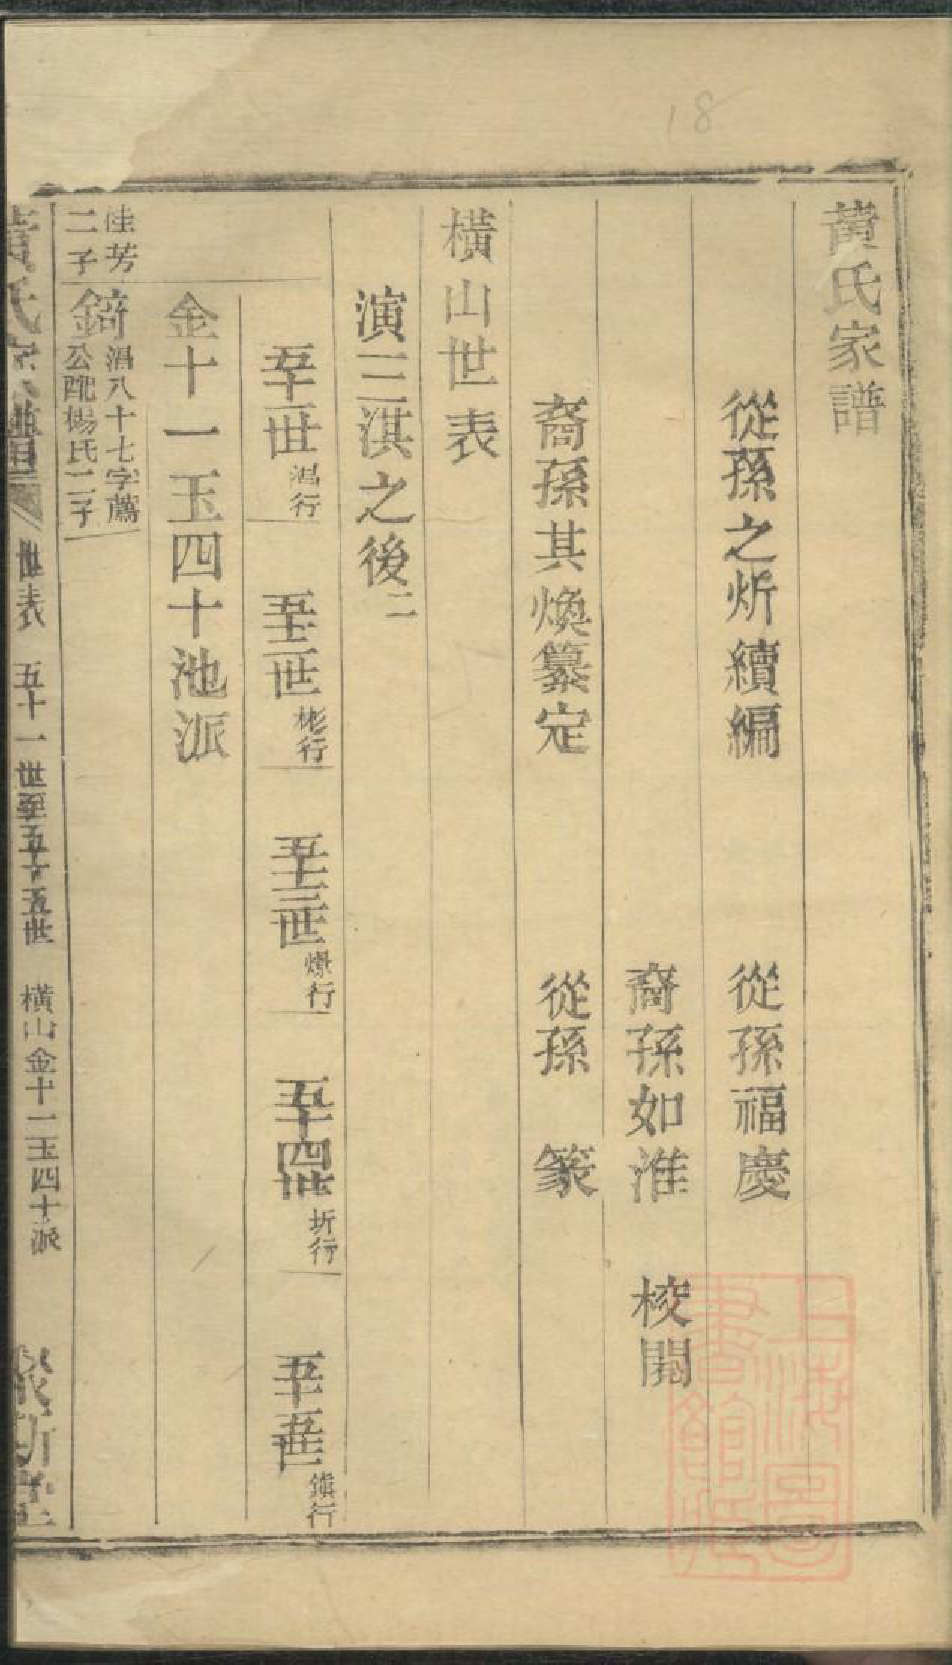 18
黃氏家譜
從孫之炘續編　從孫福慶
裔孫如淮　校閱
裔孫其煥纂定　從孫　篆
橫山世表
演三淇之後二
五十一世淐行　五十二世彬行　五十三世爆行　五十四世圻行　五十五世鎮行
金十一玉四十池派
佳芳
二子
錡
淐八十七字薦
公配楊氏二子
黃氏家譜　世表　五十一世至五十五世　橫山金十一玉四十派　敘斯堂
上海圖書館藏